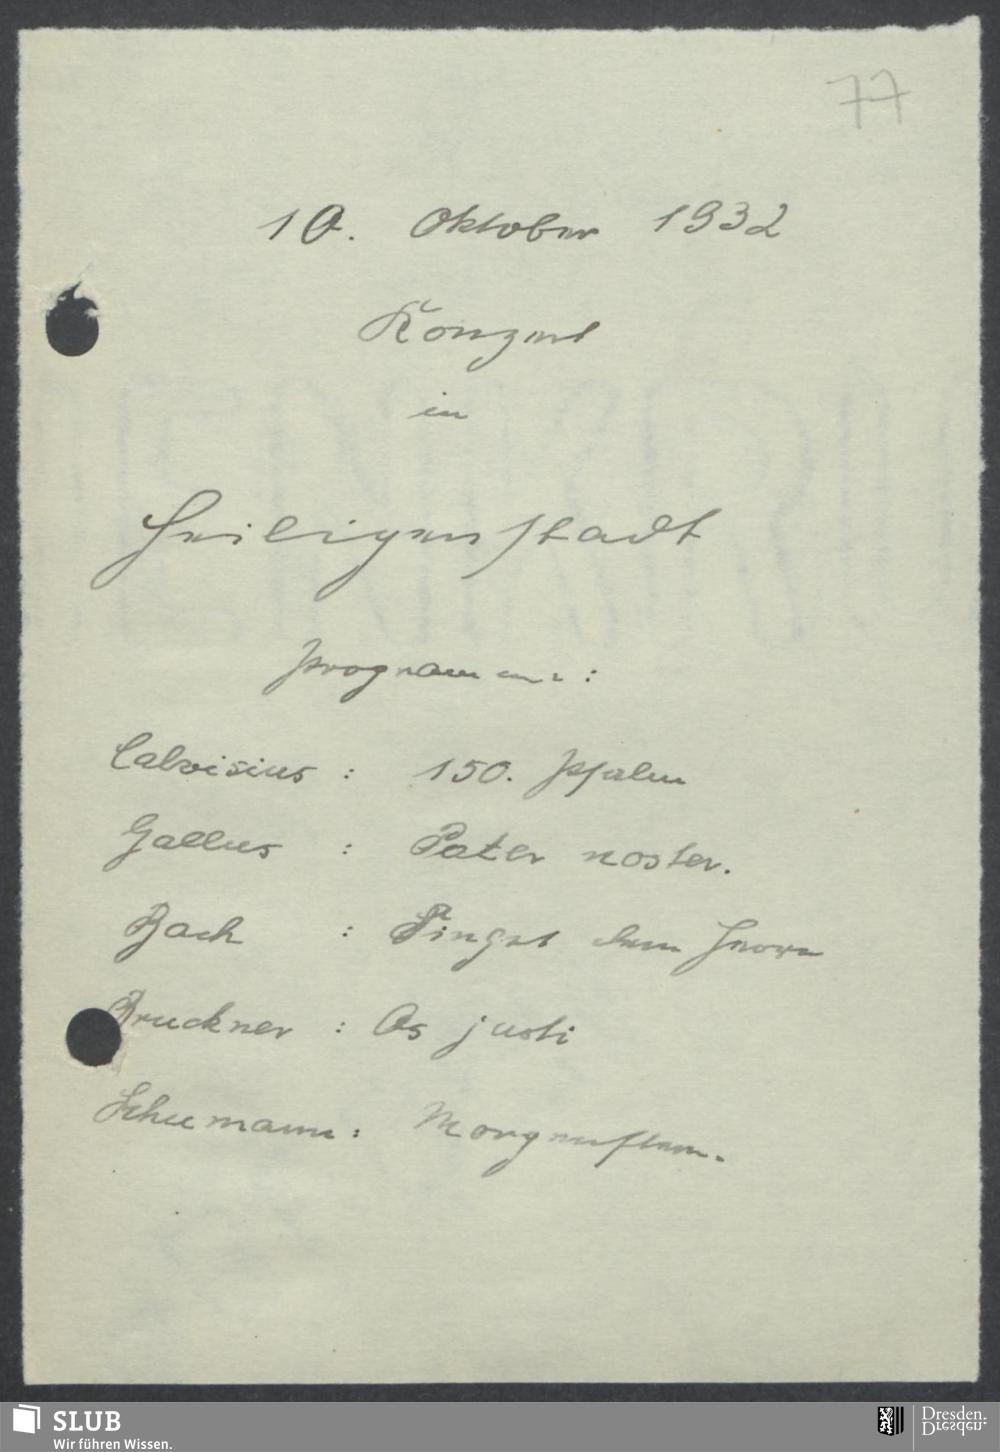 77
10. Oktober 1932
Konzert
in
Heiligenstadt
Programm:
Calvisius : 150. Psalm
Gallus : Pater noster.
Bach : Singet dem Herrn
Bruckner : Os justi
Schumann: Morgenstern.
SLUB
Wir führen Wissen.
Dresden.